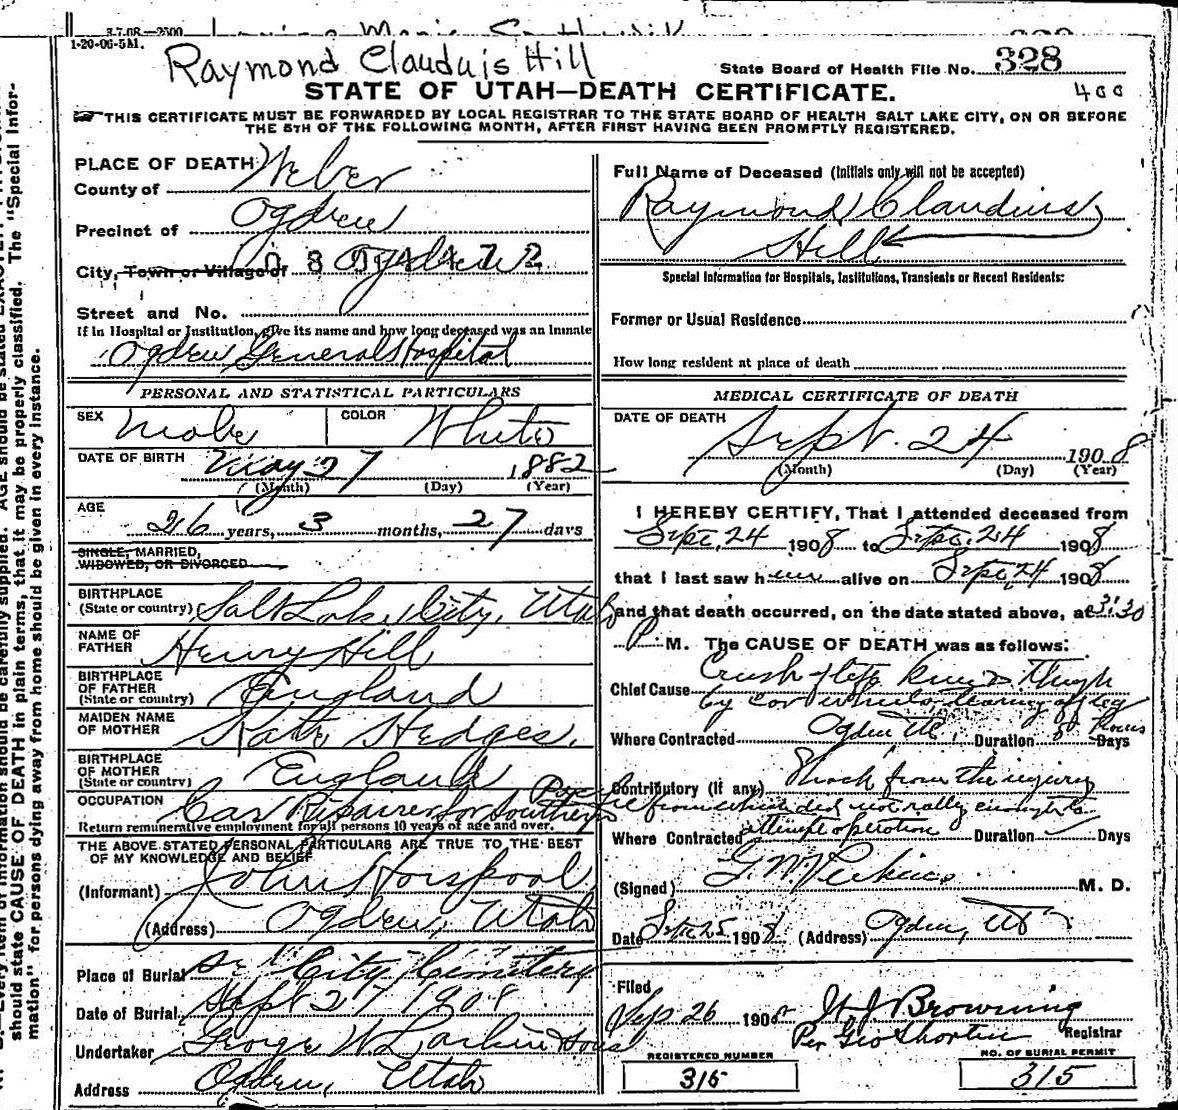 3-7-08—2500
1-20-06-5M.
Raymond Clauduis Hill
State Board of Health File No. 328
STATE OF UTAH—DEATH CERTIFICATE. 400
THIS CERTIFICATE MUST BE FORWARDED BY LOCAL REGISTRAR TO THE STATE BOARD OF HEALTH SALT LAKE CITY, ON OR BEFORE
THE 5TH OF THE FOLLOWING MONTH, AFTER FIRST HAVING BEEN PROMPTLY REGISTERED.
PLACE OF DEATH
County of Weber
Precinct of Ogden
City, Town or Village of Ogden
Street and No.
If in Hospital or Institution, give its name and how long deceased was an inmate
Ogden General Hospital
PERSONAL AND STATISTICAL PARTICULARS
SEX Male COLOR White
DATE OF BIRTH May 27 1882
(Month) (Day) (Year)
AGE
26 years, 3 months, 27 days
SINGLE, MARRIED,
WIDOWED, OR DIVORCED
BIRTHPLACE
(State or country) Salt Lake City, Utah
NAME OF
FATHER Henry Hill
BIRTHPLACE
OF FATHER England
(State or country)
MAIDEN NAME
OF MOTHER Kate Hedges.
BIRTHPLACE
OF MOTHER England
(State or country)
OCCUPATION Car Repairer for Southern Pacific
Return remunerative employment for all persons 10 years of age and over.
THE ABOVE STATED PERSONAL PARTICULARS ARE TRUE TO THE BEST
OF MY KNOWLEDGE AND BELIEF
(Informant) John Horspool
(Address) Ogden, Utah
Place of Burial City Cemetery
Date of Burial, Sept 27 1908
Undertaker George W Larkin & Sons
Address Ogden, Utah
Full Name of Deceased (Initials only will not be accepted)
Raymond Claudius
Hill
Special Information for Hospitals, Institutions, Transients or Recent Residents:
Former or Usual Residence
How long resident at place of death
MEDICAL CERTIFICATE OF DEATH
DATE OF DEATH
Sept. 24 1908
(Month) (Day) (Year)
I HEREBY CERTIFY, That I attended deceased from
Sept. 24 1908 to Sept. 24 1908
that I last saw him alive on Sept. 24 1908
and that death occurred, on the date stated above, at 3:30
P. M. The CAUSE OF DEATH was as follows:
Chief Cause Crush of left knee & thigh
by car wheels tearing off leg
Where Contracted Ogden Ut. Duration Hours Days
Contributory (if any) Shock from the injury
from which did not rally enough to
Where Contracted attempt operation Duration Days
(Signed) G. M. Perkins M. D.
Date Sept 25 1908 (Address) Ogden, Ut
Filed
Sep 26 1908 Browning
Per Geo Shorten Registrar
REGISTERED NUMBER
315
NO. OF BURIAL PERMIT
315
should state CAUSE OF DEATH in plain terms, that it may be properly classified. The "Special Infor-
mation" for persons dying away from home should be given in every instance.